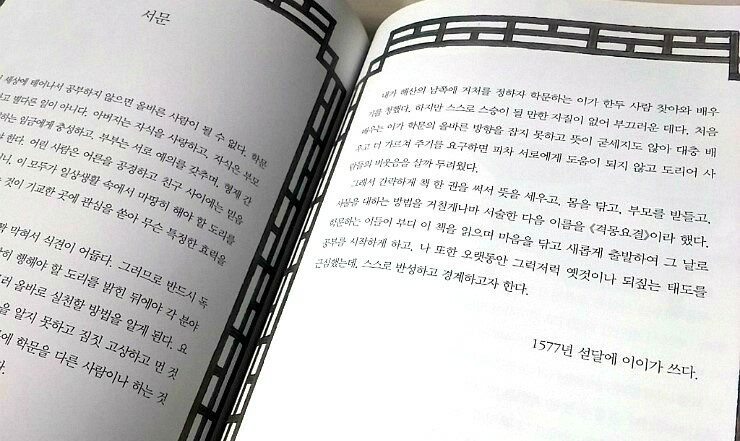 서문
세상에 태어나서 공부하지 않으면 올바른 사람이 될 수 없다. 학문
고 별다른 일이 아니다. 아버지는 자식을 사랑하고, 자식은 부모
하는 임금에게 충성하고, 부부는 서로 예의를 갖추며, 형제 간
야 한다. 어린 사람은 어른을 공경하고 친구 사이에는 믿음
나, 이 모두가 일상생활 속에서 마땅히 해야 할 도리를
는 것이 기묘한 곳에 관심을 쏟아 무슨 특정한 효력을
막혀서 식견이 어둡다. 그러므로 반드시 독
히 행해야 할 도리를 밝힌 뒤에야 각 분야
올바로 실천할 방법을 알게 된다. 요
을 알지 못하고 짐짓 고상하고 먼 것
에 학문을 다른 사람이나 하는 것
내가 해산의 남쪽에 거처를 정하자 학문하는 이가 한두 사람 찾아와 배우
기를 청했다. 하지만 스스로 스승이 될 만한 자질이 없어 부끄러운 데다, 처음
배우는 이가 학문의 올바른 방향을 잡지 못하고 뜻이 굳세지도 않아 대충 배
우고 더 가르쳐 주기를 요구하면 피차 서로에게 도움이 되지 않고 도리어 사
람들의 비웃음을 살까 두려웠다.
그래서 간략하게 책 한 권을 써서 뜻을 세우고, 몸을 닦고, 부모를 받들고,
사물을 대하는 방법을 거칠게나마 서술한 다음 이름을 《격몽요결》이라 했다.
학문하는 이들이 부디 이 책을 읽으며 마음을 닦고 새롭게 출발하여 그 날로
공부를 시작하게 하고, 나 또한 오랫동안 그럭저럭 옛것이나 되짚는 태도를
근심했는데, 스스로 반성하고 경계하고자 한다.
1577년 섣달에 이이가 쓰다.